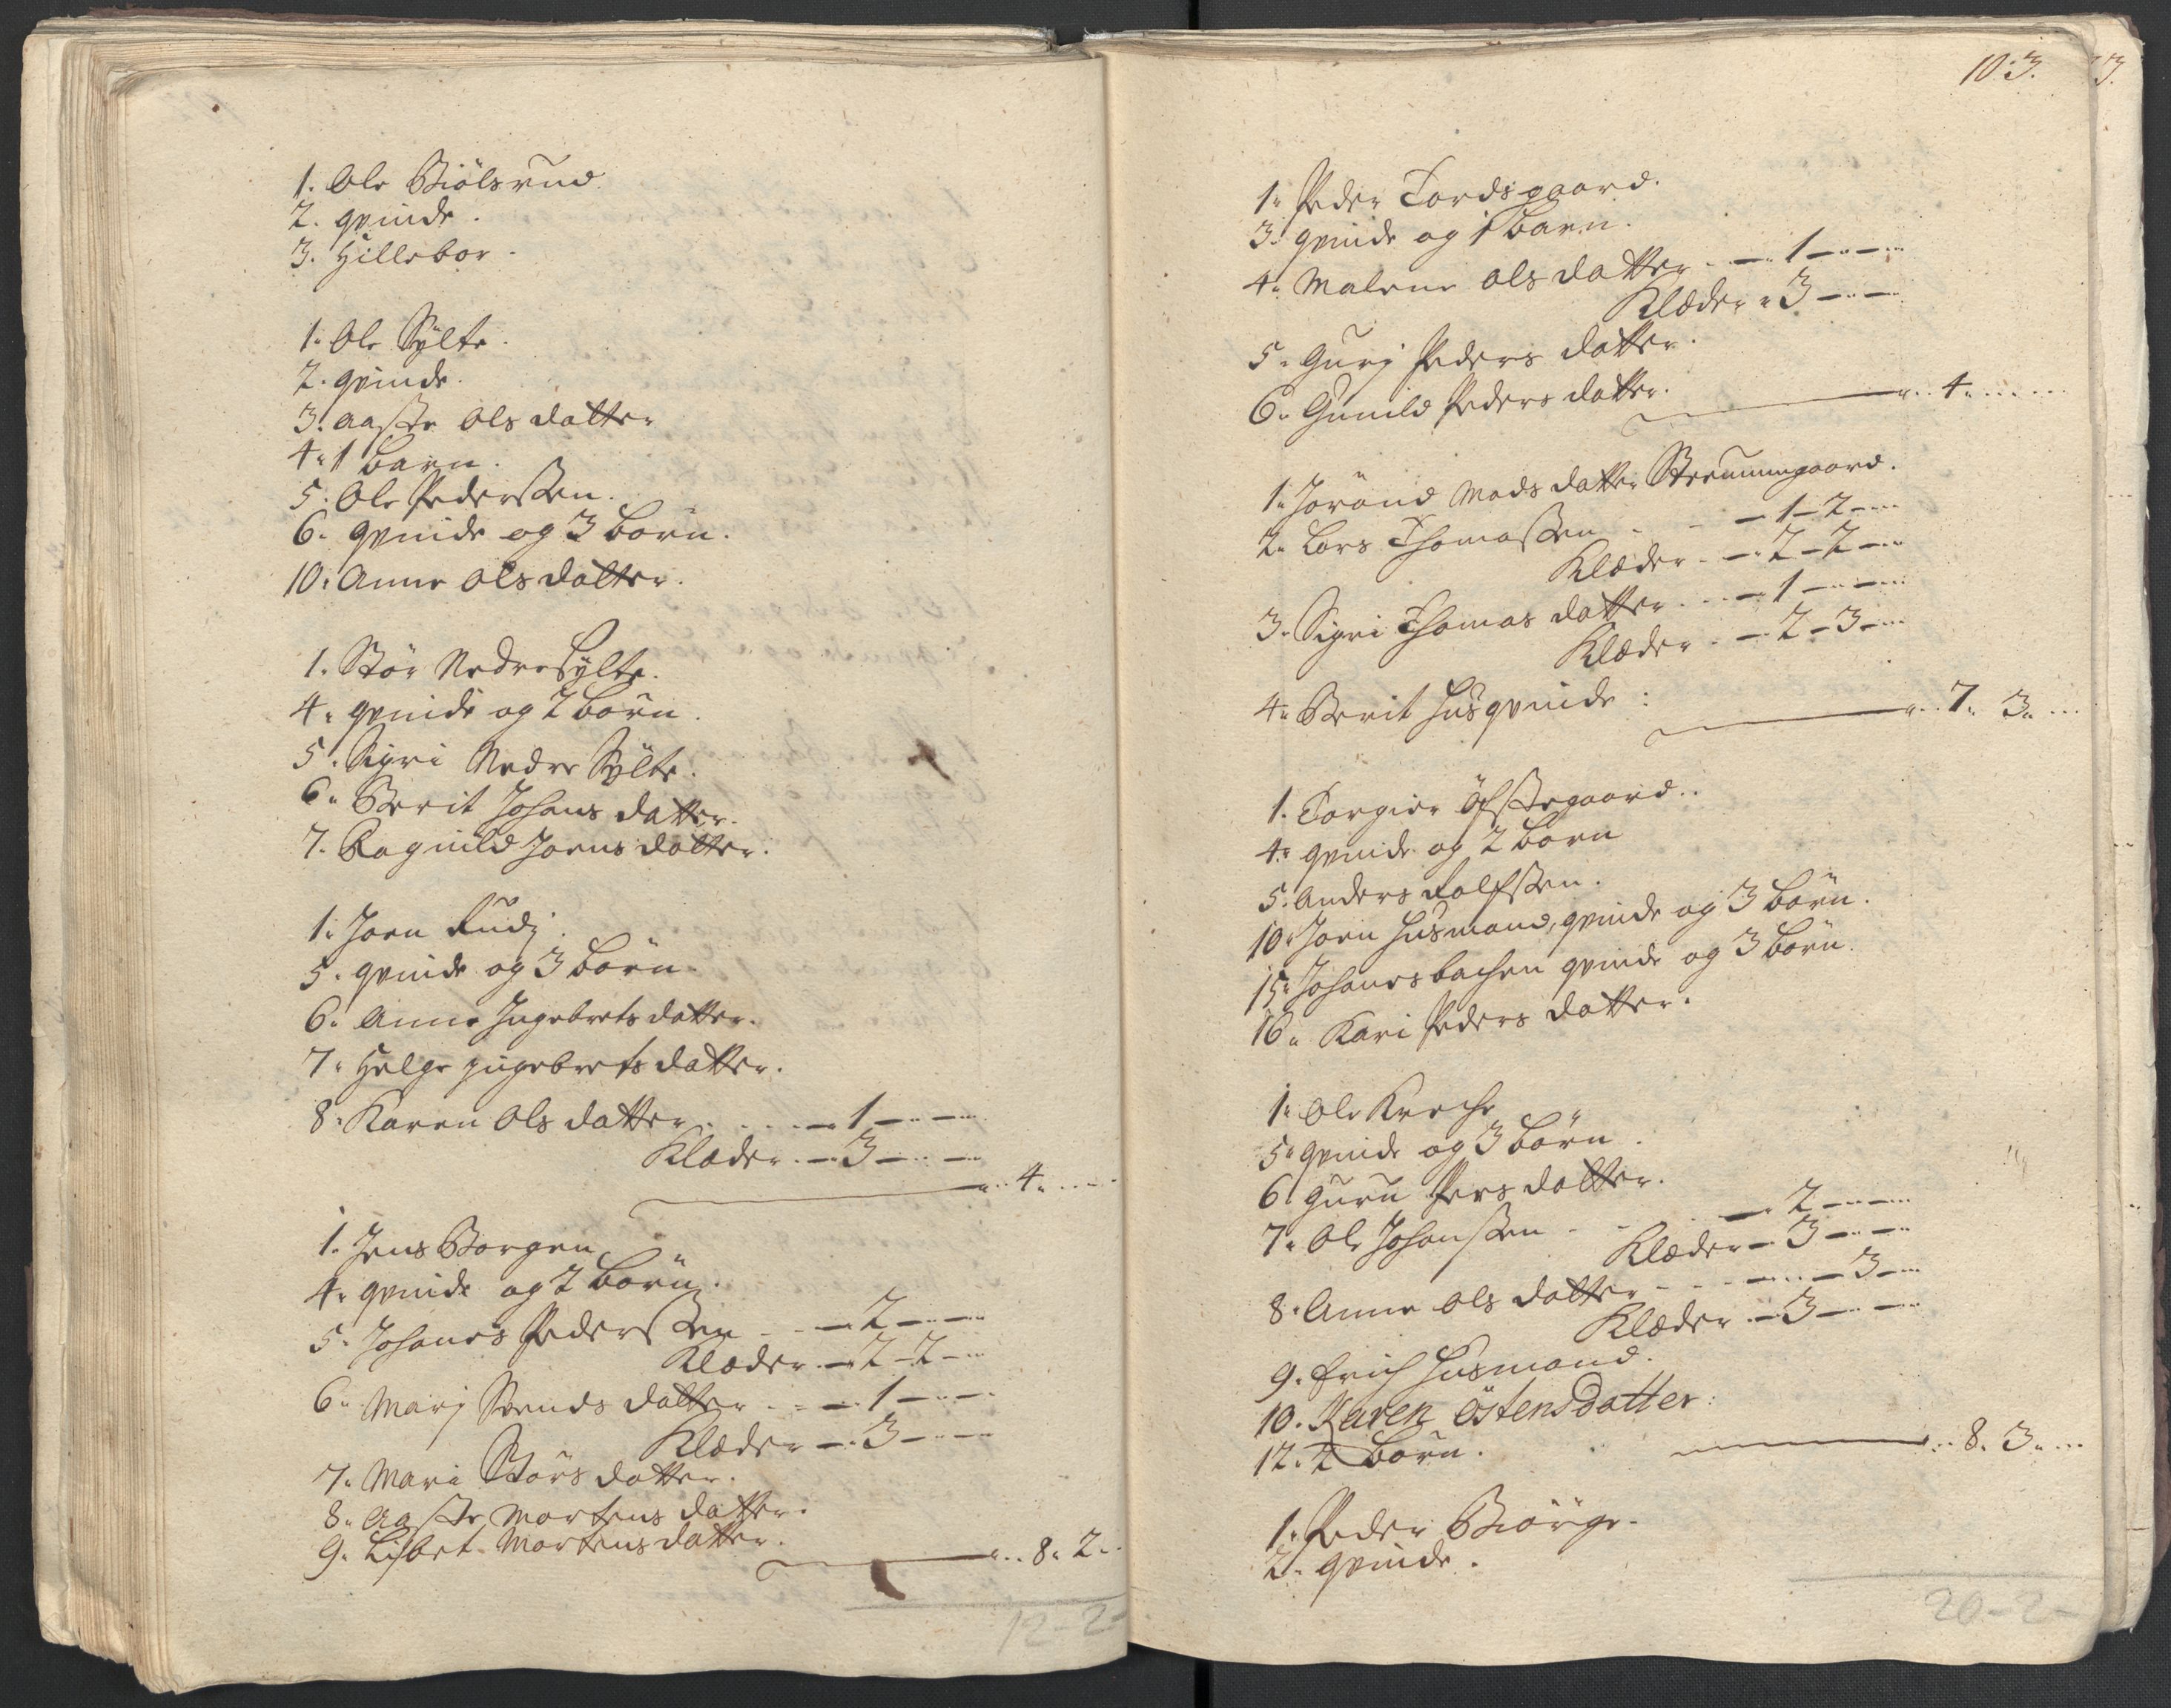 1. Ole Biölsrud
2. qvinde.
3. Hillebor.
1. Ole Sÿlte.
2. qvinde.
3. Aaste Olsdatter
4. 1 barn.
5. Ole Pederssen.
6. qvinde og 3 börn.
10. Anne Olsdatter.
1. Stör Nedre Sÿlte.
4. qvinde og 2 börn.
5. Sigri Nedre Sÿlte.
6. Berit Johansdatter.
7. Ragnild Joensdatter.
1. Joen Rudj.
5. qvinde og 3 börn.
6. Anne Ingebretsdatter.
7. Helge Jngebretsdatter.
8. Karen Olsdatter. . . . — 1 — —
Klæder. — 3 — —
4.
1. Jens Borgen
4. qvinde og 2 börn.
5. Johanes Pederssen — 2 — —
Klæder — 2 – 2 —
6. Marj Svendsdatter — 1 — —
Klæder — 3 — —
7. Mari Störsdatter.
8. Aaste Mortensdatter.
9. Lisbet Mortensdatter.
8. 2.
12 – 2 –
103.
3.
1. Peder Tordsgaard.
3. qvinde og 1 barn.
4. Malene Olsdatter — 1 — —
Klæder 3 — —
5. Gurj Pedersdatter.
6. Gunild Pedersdatter.
4.
1. Jorånd Madsdatter
2. Lars Thomassen — 1 – 2 —
Klæder — 2 – 2 —
3. Sigri Thomasdatter — 1 — —
Klæder — 2 – 3 —
4. Berit Husqvinde :
7. 3.
1. Torgier Öfstegaard.
4. qvinde og 2 börn
5. Anders Rolfssen.
10. Joen Husmand, qvinde og 3 börn.
15. Johanes bachen qvinde og 3 börn.
16. Kari Pedersdatter.
1. Ole Kroche
5. qvinde og 3 börn.
6. Guru Persdatter.
7. Ole Johanssen — 2 — —
Klæder — 3 — —
8. Anne Olsdatter — — 3 —
Klæder — 3 — —
9. Erich Husmand.
10. Karen Östensdatter:
12. 2 börn.
8. 3.
1. Peder Biörge.
2. qvinde.
20 – 2 –